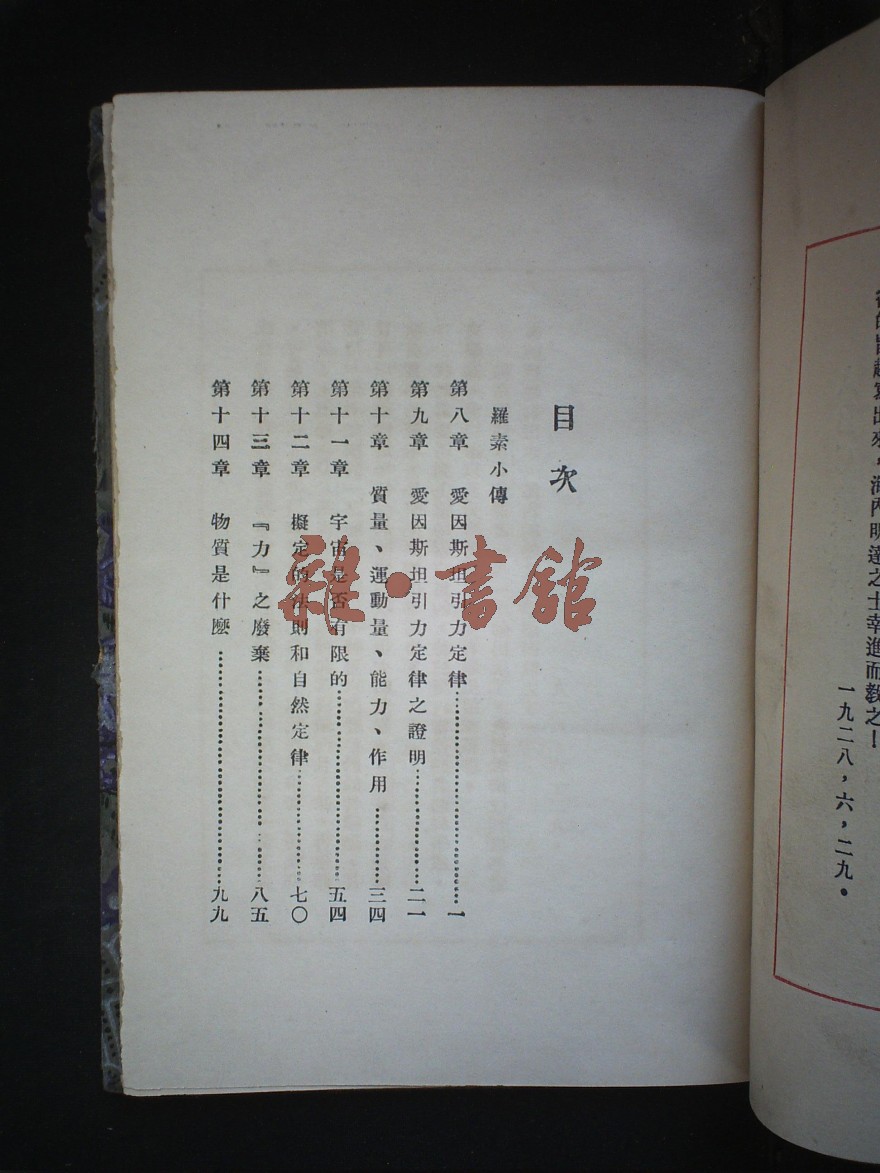 的
出來，海內明達之士幸進而教之！
一九二八，六，二九。
目次
羅素小傳
第八章　愛因斯坦引力定律……………………一
第九章　愛因斯坦引力定律之證明……………二一
第十章　質量、運動量、能力、作用…………三四
第十一章　宇宙是否有限的……………………五四
第十二章　擬定的法則和自然定律……………七〇
第十三章　『力』之廢棄………………………八五
第十四章　物質是什麼…………………………九九
雜·書館